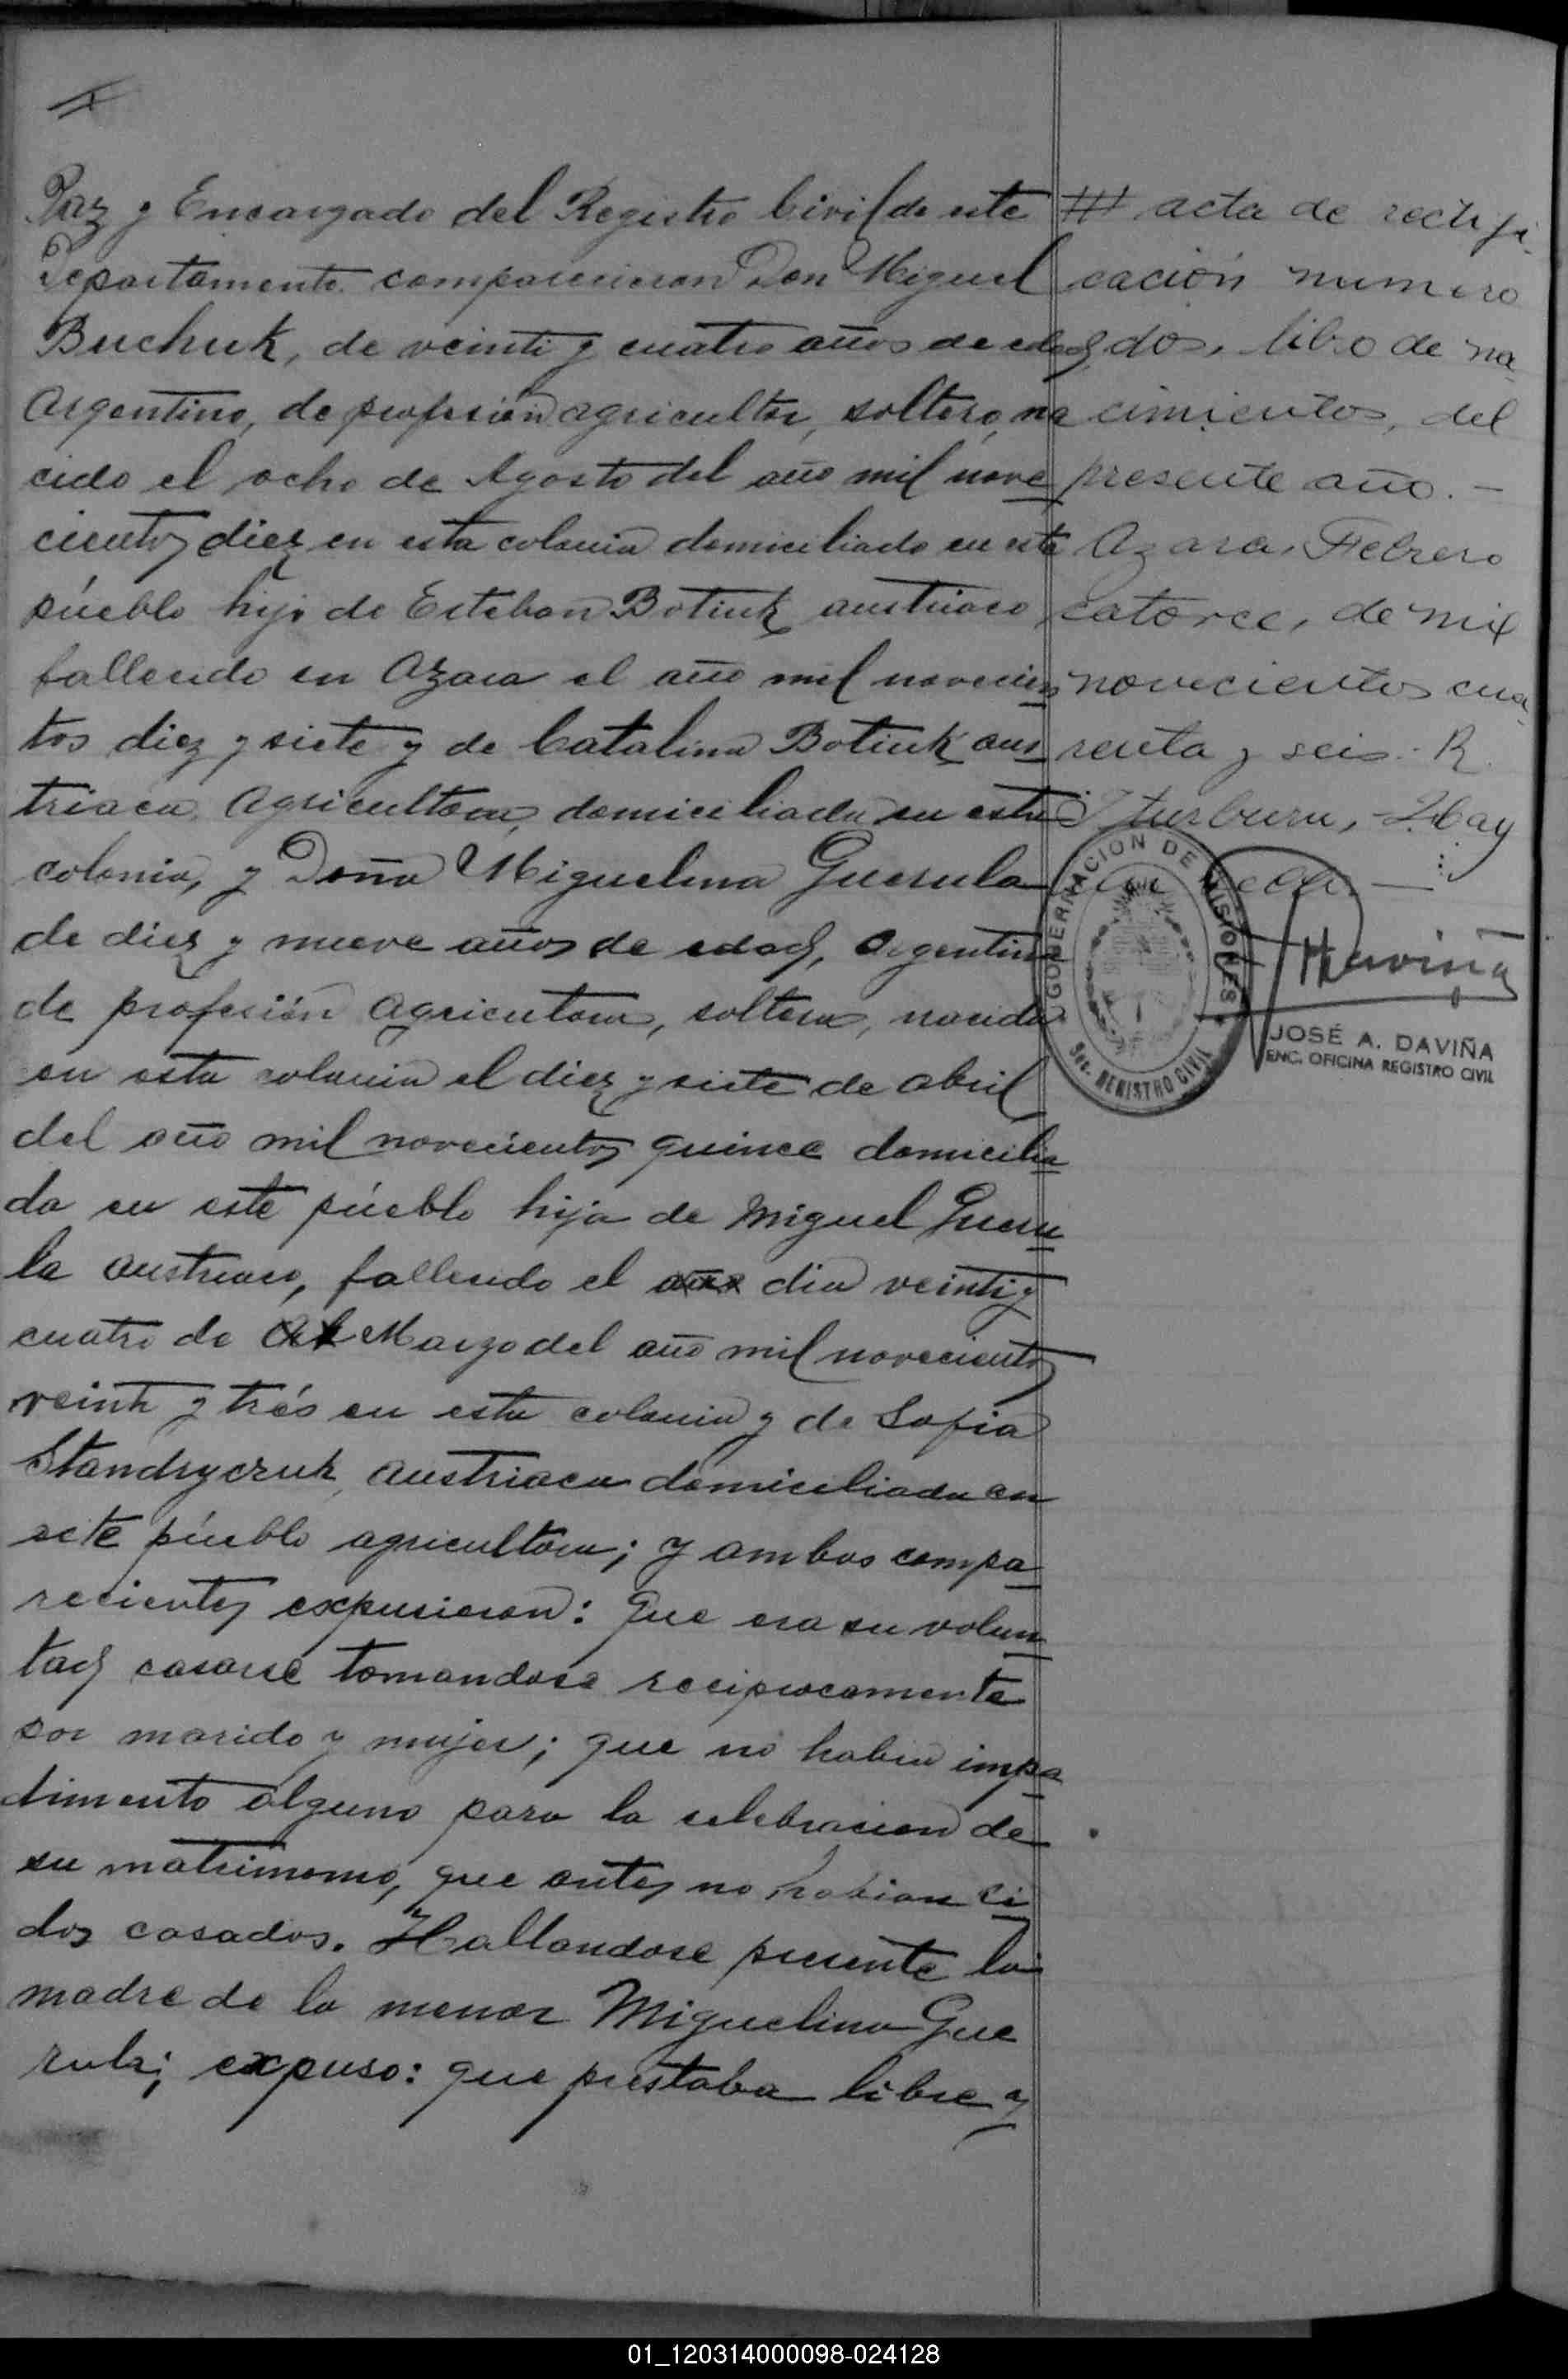 Paz y Encargado del Registro Civil de este
Departamento comparecieron Don Miguel
Buchuk, de veinti y cuatro años de edad,
Argentino, de profesión agricultor, soltero, na
cido el ocho de Agosto del año mil nove
cientos diez en esta colonia domiciliado en este
pueblo hijo de Esteban Botiuk austriaco
fallecido en Azara el año mil novecien
tos diez y siete y de Catalina Botiuk aus
triaca, Agricultora, domiciliada en esta
colonia, y Doña Miguelina Guerula
de diez y nueve años de edad, Argentina
de profesión agricutora, soltera, nacida
en esta colonia el diez y siete de abril
del año mil novecientos quince domicilia
da en este pueblo hija de Miguel Gueru
la austriaco, fallecido el año dia veinti y
cuatro de Ab Marzo del año mil novecientos
veinti y trés en esta colonia y de Sofia
Standryczuk, austriaca domiciliada en
este pueblo agricultora; y ambos compa
recientes expusieron: Que era su volun
tad casarse tomandose reciprocamente
por marido y mujer; que no habia impe
dimento alguno para la celebracion de
su matrimonio, que antes no habian si
dos casados. Hallandose presente la
madre de la menor Miguelina Gue
rula; expuso: que prestaba libre y
acta de rectifi
cación numero
dos, libro de na
cimientos, del
presente año. —
Azara, Febrero
catorce, de mil
novecientos cua
renta y seis. R.
Iturburu, - Hay
un sello. —
GOBERNACION DE MISIONES
Sec. REGISTRO CIVIL
JOSÉ A. DAVIÑA
ENC. OFICINA REGISTRO CIVIL
01_120314000098-024128